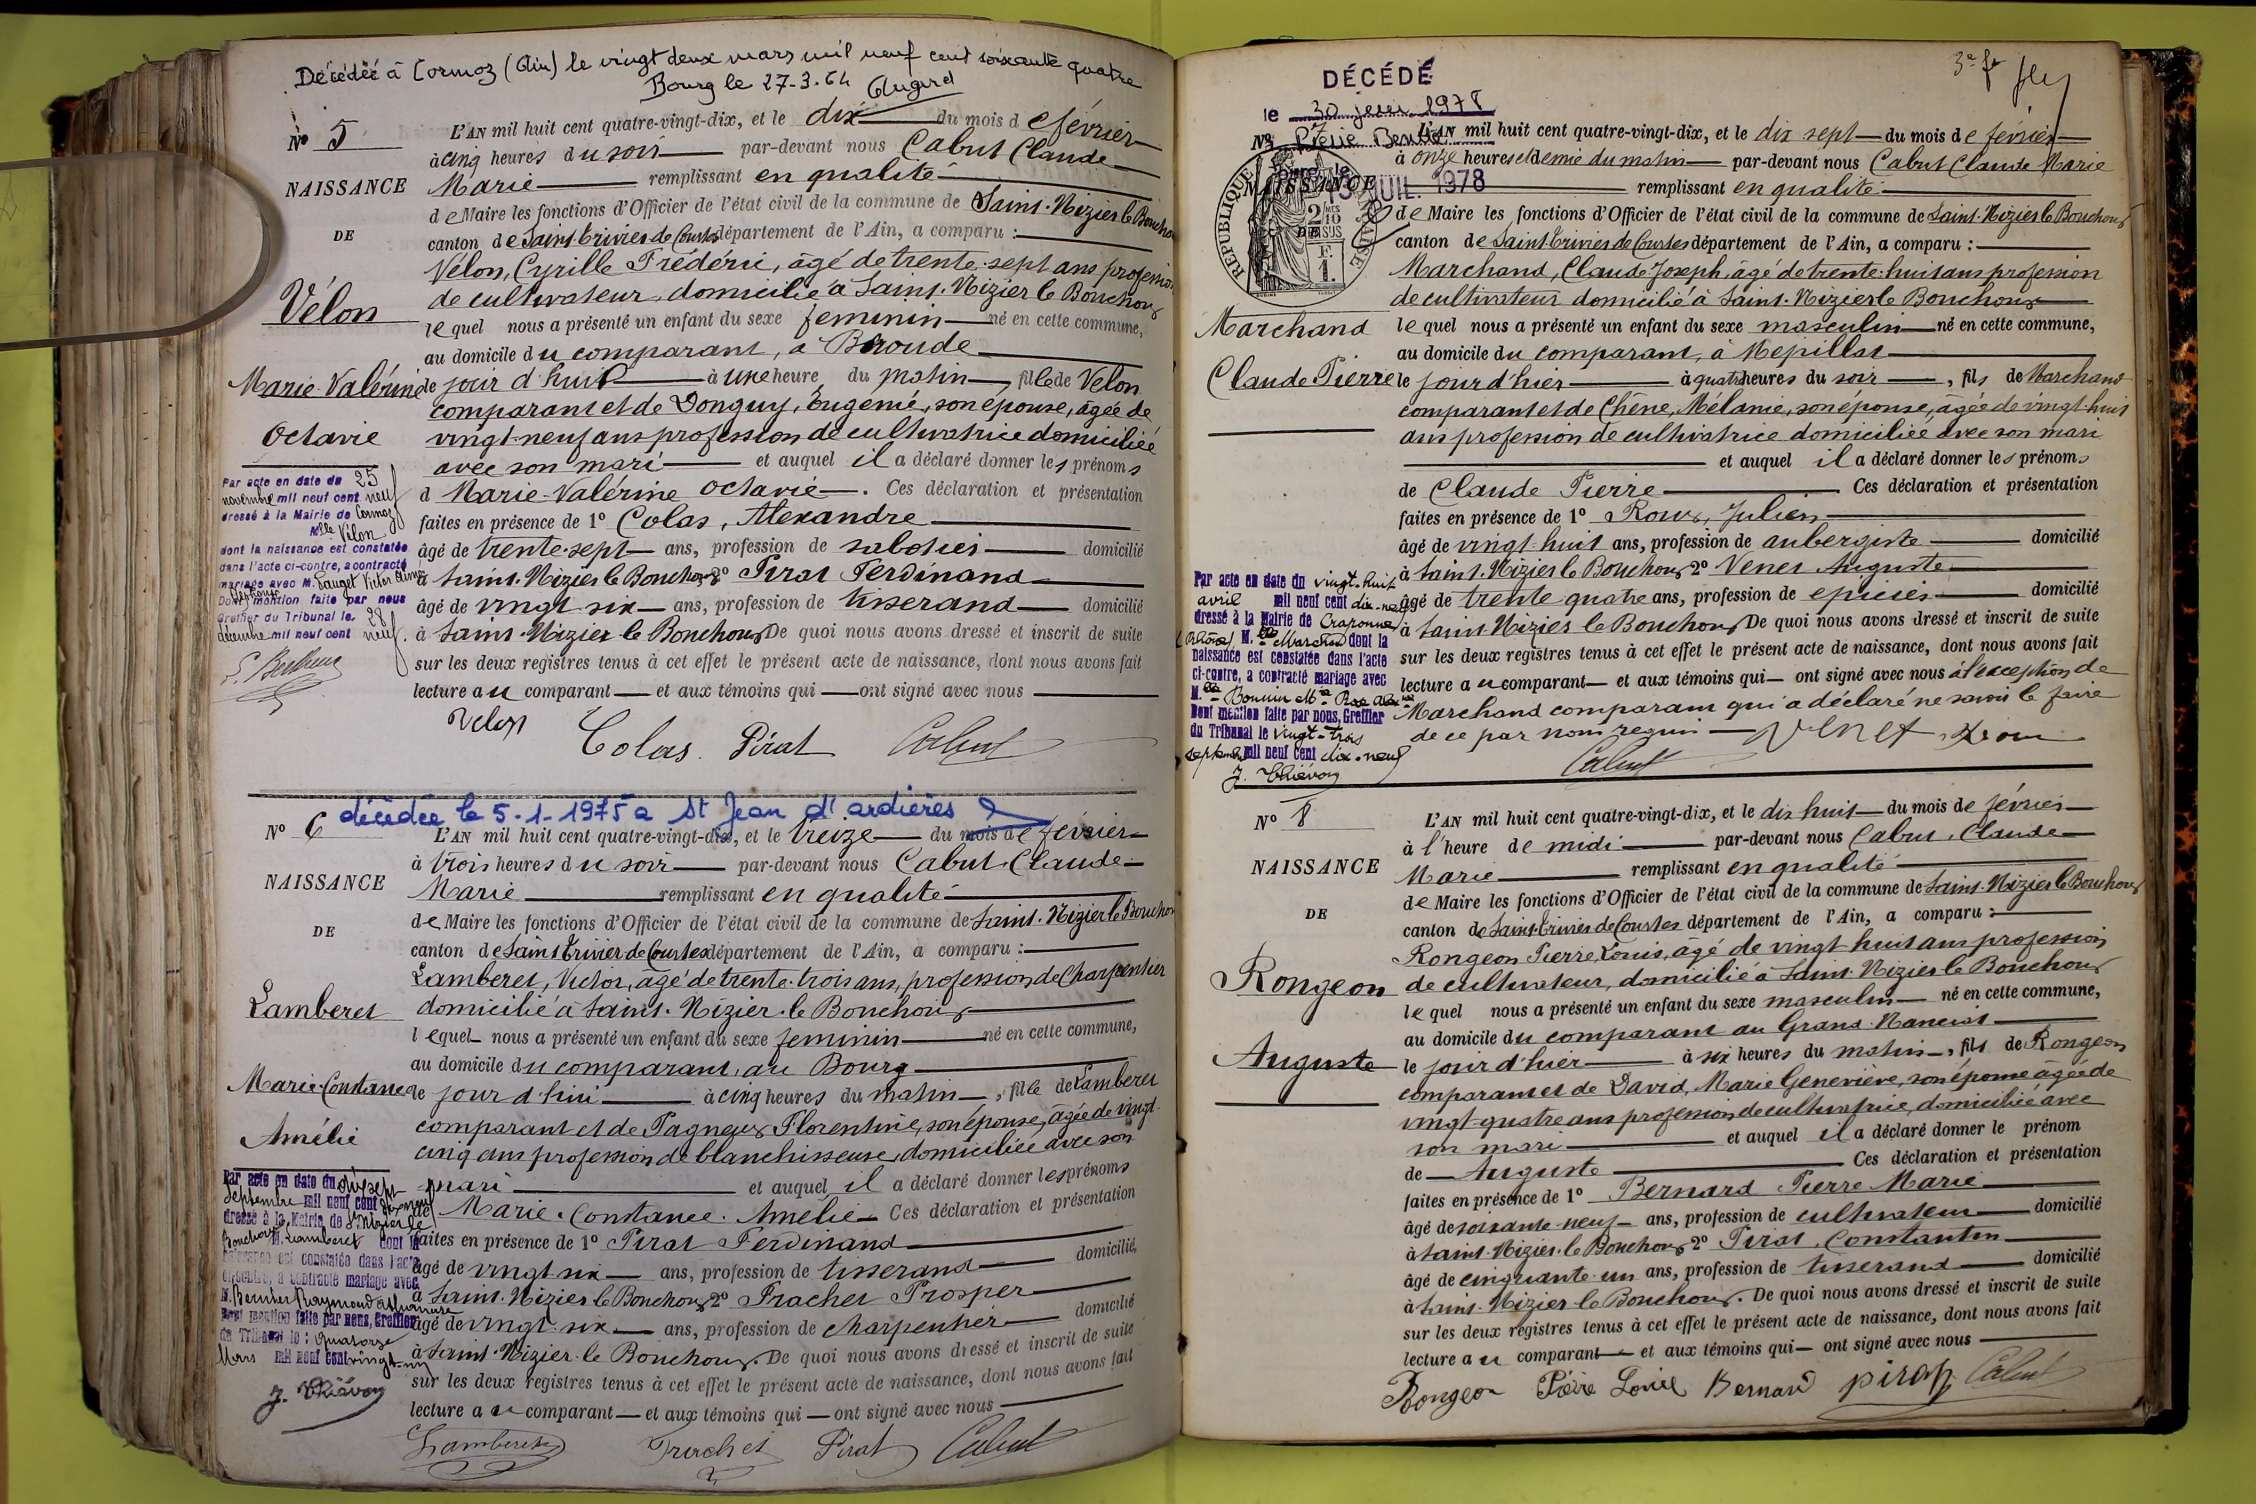 Décédée à Cormoz (Ain) le vingt deux mars mil neuf cent soixante quatre
Bourg le 27-3-64
N° 5
NAISSANCE
DE
Vélon
Marie-Valérine
Octavie
L'AN mil huit cent quatre-vingt-dix, et le dix du mois de février
à cinq heures du soir par-devant nous Cabut Claude
Marie remplissant en qualité
de Maire les fonctions d'Officier de l'état civil de la commune de Saint-Nizier le Bouchoux
canton de Saint-Trivier de Courtes département de l'Ain, a comparu :
Vélon, Cyrille Frédéric, âgé de trente-sept ans profession
de cultivateur, domicilié à Saint-Nizier le Bouchoux
lequel nous a présenté un enfant du sexe féminin né en cette commune,
au domicile du comparant, à
le jour d'hui à une heure du matin, fille de Vélon
comparant et de Donguy, Eugénie, son épouse, âgée de
vingt-neuf ans profession de cultivatrice domiciliée
avec son mari et auquel il a déclaré donner les prénoms
d Marie-Valérine Octavie. Ces déclaration et présentation
faites en présence de 1° Colas, Alexandre
âgé de trente-sept ans, profession de sabotier domicilié
à Saint-Nizier le Bouchoux 2° Pirat Ferdinand
âgé de vingt six ans, profession de tisserand domicilié
à Saint-Nizier le Bouchoux De quoi nous avons dressé et inscrit de suite
sur les deux registres tenus à cet effet le présent acte de naissance, dont nous avons fait
lecture au comparant et aux témoins qui ont signé avec nous
Velon Colas Pirat Cabut
Par acte en date du 25
novembre mil neuf cent neuf
dressé à la Mairie de Cormoz
Mlle Vélon
dont la naissance est constatée
dans l'acte ci-contre, a contracté
mariage avec M.
Dont mention faite par nous
Greffier du Tribunal le 28
décembre mil neuf cent neuf.
décédée le 5-1-1975 à St Jean d'ardières
N° 6
NAISSANCE
DE
Lamberet
Marie-Constance
Amélie
L'AN mil huit cent quatre-vingt-dix, et le treize du mois de février
à trois heures du soir par-devant nous Cabut Claude
Marie remplissant en qualité
de Maire les fonctions d'Officier de l'état civil de la commune de Saint-Nizier le Bouchoux
canton de Saint Trivier de Courtes département de l'Ain, a comparu :
Lamberet, Victor, âgé de trente-trois ans, profession de Charpentier
domicilié à Saint-Nizier-le Bouchoux
lequel nous a présenté un enfant du sexe féminin né en cette commune,
au domicile du comparant, au Bourg
le jour d'hui à cinq heures du matin, fille de Lamberet
comparant et de Pagneux Florentine, son épouse, âgée de vingt
cinq ans profession de blanchisseuse, domiciliée avec son
mari et auquel il a déclaré donner les prénoms
de Marie-Constance-Amélie Ces déclaration et présentation
faites en présence de 1° Pirat Ferdinand
âgé de vingt six ans, profession de tisserand domicilié
à Saint-Nizier le Bouchoux 2° Prosper
âgé de vingt-six ans, profession de charpentier domicilié
à Saint-Nizier-le Bouchoux. De quoi nous avons dressé et inscrit de suite
sur les deux registres tenus à cet effet le présent acte de naissance, dont nous avons fait
lecture au comparant et aux témoins qui ont signé avec nous
Lamberet Pirat Cabut
Par acte en date du dix sept
Septembre mil neuf cent dix neuf
dressé à la Mairie de St Nizier le
Bouchoux M. Lamberet dont la
naissance est constatée dans l'acte
ci-contre, a contracté mariage avec
M. Raymond
Dont mention faite par nous, Greffier
du Tribunal le : quatorze
Mars mil neuf cent vingt-un
J. Thiévon
3e f
DÉCÉDÉ
le 30 1978
JUIL. 1978
RÉPUBLIQUE FRANÇAISE
NAISSANCE
DE
Marchand
Claude Pierre
L'AN mil huit cent quatre-vingt-dix, et le dix sept du mois de février
à onze heures et demie du matin par-devant nous Cabut Claude Marie
remplissant en qualité
de Maire les fonctions d'Officier de l'état civil de la commune de Saint-Nizier le Bouchoux
canton de Saint Trivier de Courtes département de l'Ain, a comparu :
Marchand, Claude Joseph, âgé de trente-huit ans profession
de cultivateur domicilié à Saint-Nizier le Bouchoux
lequel nous a présenté un enfant du sexe masculin né en cette commune,
au domicile du comparant, à Mépillat
le jour d'hier à quatre heures du soir, fils de Marchand
comparant et de Chêne, Mélanie, son épouse, âgée de vingt-huit
ans profession de cultivatrice domiciliée avec son mari
et auquel il a déclaré donner les prénoms
de Claude Pierre Ces déclaration et présentation
faites en présence de 1° Roux, Julien
âgé de vingt-huit ans, profession de aubergiste domicilié
à Saint-Nizier le Bouchoux 2° Venet Auguste
âgé de trente quatre ans, profession de épicier domicilié
à Saint-Nizier le Bouchoux De quoi nous avons dressé et inscrit de suite
sur les deux registres tenus à cet effet le présent acte de naissance, dont nous avons fait
lecture au comparant et aux témoins qui ont signé avec nous à l'exception de
Marchand comparant qui a déclaré ne savoir le faire
de ce par nous requis Venet Roux
Cabut
Par acte en date du vingt-huit
avril mil neuf cent dix-neuf
dressé à la Mairie de Craponne
(Rhône) M. Marchand dont la
naissance est constatée dans l'acte
ci-contre, a contracté mariage avec
M.
Dont mention faite par nous, Greffier
du Tribunal le vingt-trois
septembre mil neuf cent dix-neuf
J. Thiévon
N° 8
NAISSANCE
DE
Rongeon
Auguste
L'AN mil huit cent quatre-vingt-dix, et le dix huit du mois de février
à l'heure de midi par-devant nous Cabut, Claude
Marie remplissant en qualité
de Maire les fonctions d'Officier de l'état civil de la commune de Saint-Nizier le Bouchoux
canton de Saint-Trivier de Courtes département de l'Ain, a comparu :
Rongeon Pierre Louis, âgé de vingt-huit ans profession
de cultivateur, domicilié à Saint-Nizier le Bouchoux
lequel nous a présenté un enfant du sexe masculin né en cette commune,
au domicile du comparant au Grand-Nancrat
le jour d'hier à six heures du matin, fils de Rongeon
comparant et de David, Marie Geneviève, son épouse âgée de
vingt-quatre ans profession de cultivatrice, domiciliée avec
son mari et auquel il a déclaré donner le prénom
de Auguste Ces déclaration et présentation
faites en présence de 1° Bernard Pierre Marie
âgé de soixante-neuf ans, profession de cultivateur domicilié
à Saint-Nizier-le Bouchoux 2° Pirat, Constantin
âgé de cinquante-un ans, profession de tisserand domicilié
à Saint-Nizier-le Bouchoux. De quoi nous avons dressé et inscrit de suite
sur les deux registres tenus à cet effet le présent acte de naissance, dont nous avons fait
lecture au comparant et aux témoins qui ont signé avec nous
Rongeon Pierre Louis Bernard pirat Cabut